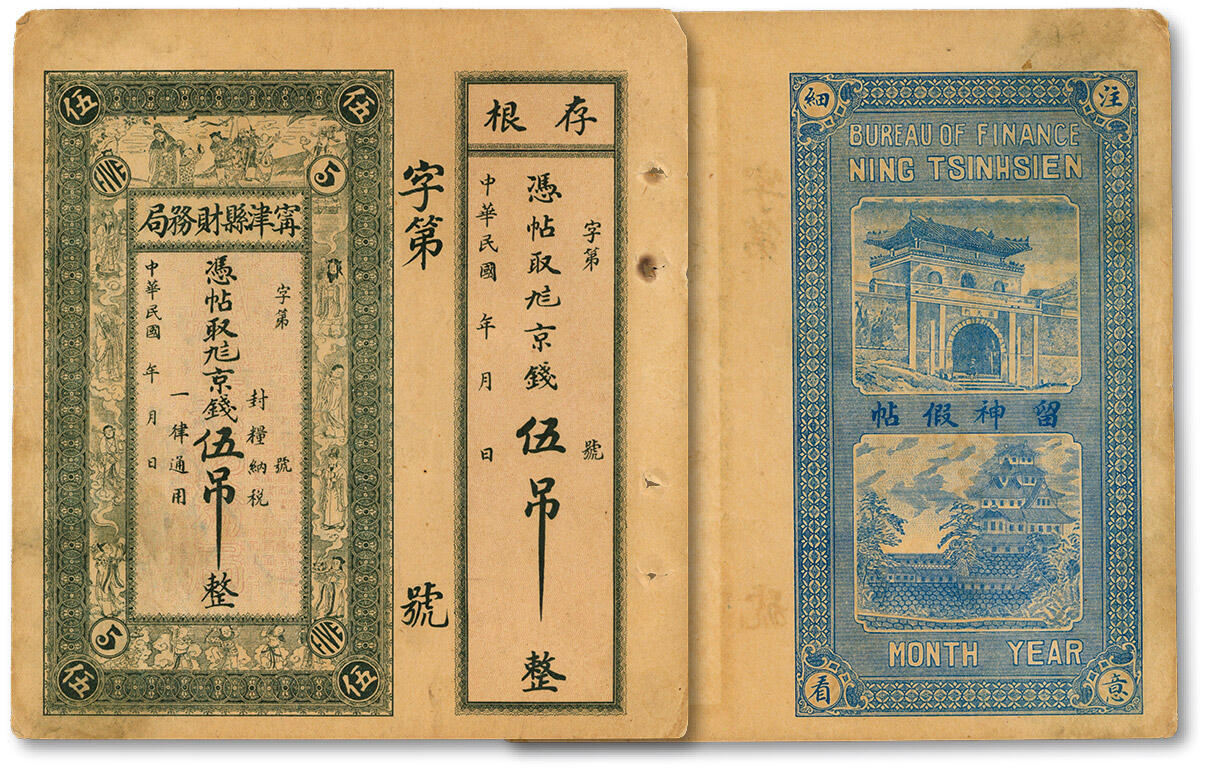 伍
伍
FIVE
5
寗津縣財務局
字第 號
封糧納税
憑帖取 京錢伍吊整
一律通用
中華民國 年 月 日
5
FIVE
伍
伍
字第 號
存根
字第 號
憑帖取 京錢伍吊整
中華民國 年 月 日
注意
細看
BUREAU OF FINANCE
NING TSINHSIEN
留神假帖
MONTH YEAR